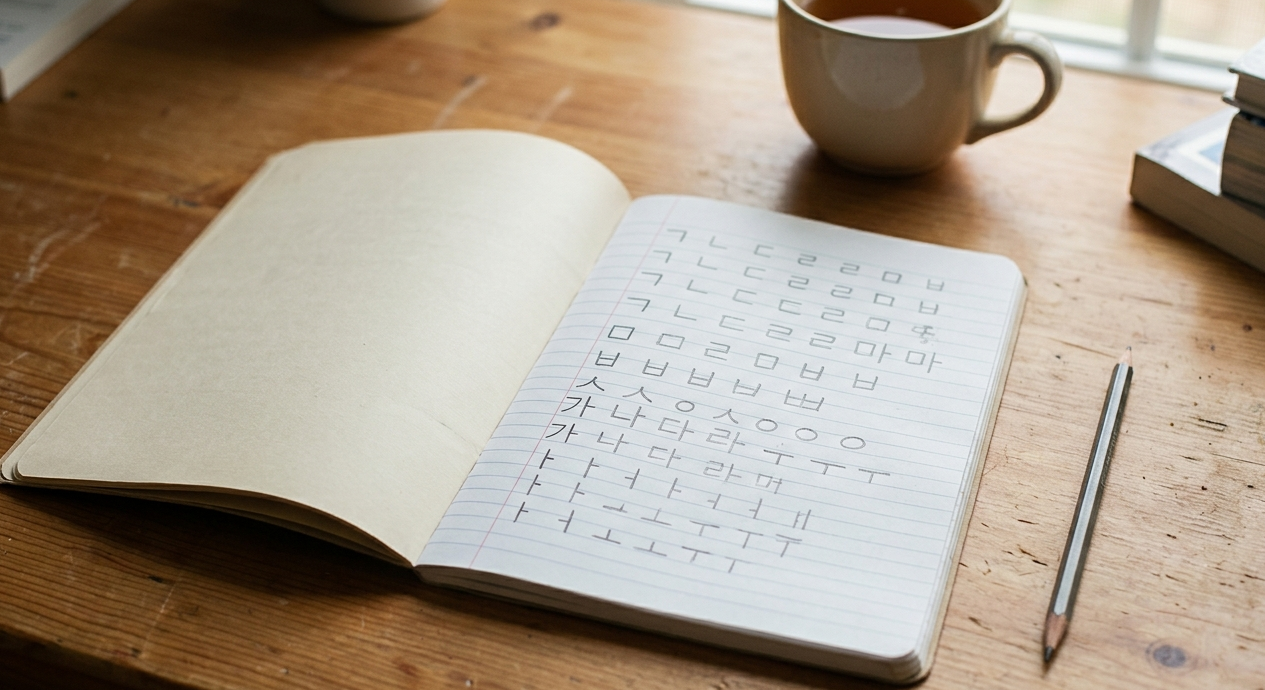 ㄱ ㄴ ㄷ ㄹ ㄹ ㅁ ㅂ
ㄱ ㄴ ㄷ ㄹ ㄹ ㅁ ㅂ
ㄱ ㄴ ㄷ ㄷ ㄹ ㅁ
ㄱ ㄴ ㄷ ㄹ ㄹ 마 마
ㅁ ㅁ ㄹ ㅁ ㅂ ㅂ
ㅂ ㅂ ㅂ ㅂ ㅃ
ㅅ ㅅ ㅇ ㅅ ㅇ ㅇ ㅇ
가 나 다 라 ㅜ ㅜ ㅜ
가 나 다 라 며
ㅏ ㅏ ㅓ ㅏ ㅓ ㅓ ㅐ
ㅏ ㅏ ㅗ ㅗ ㅜ ㅜ ㅜ
ㅏ ㅓ ㅗ ㅗ ㅜ ㅜ